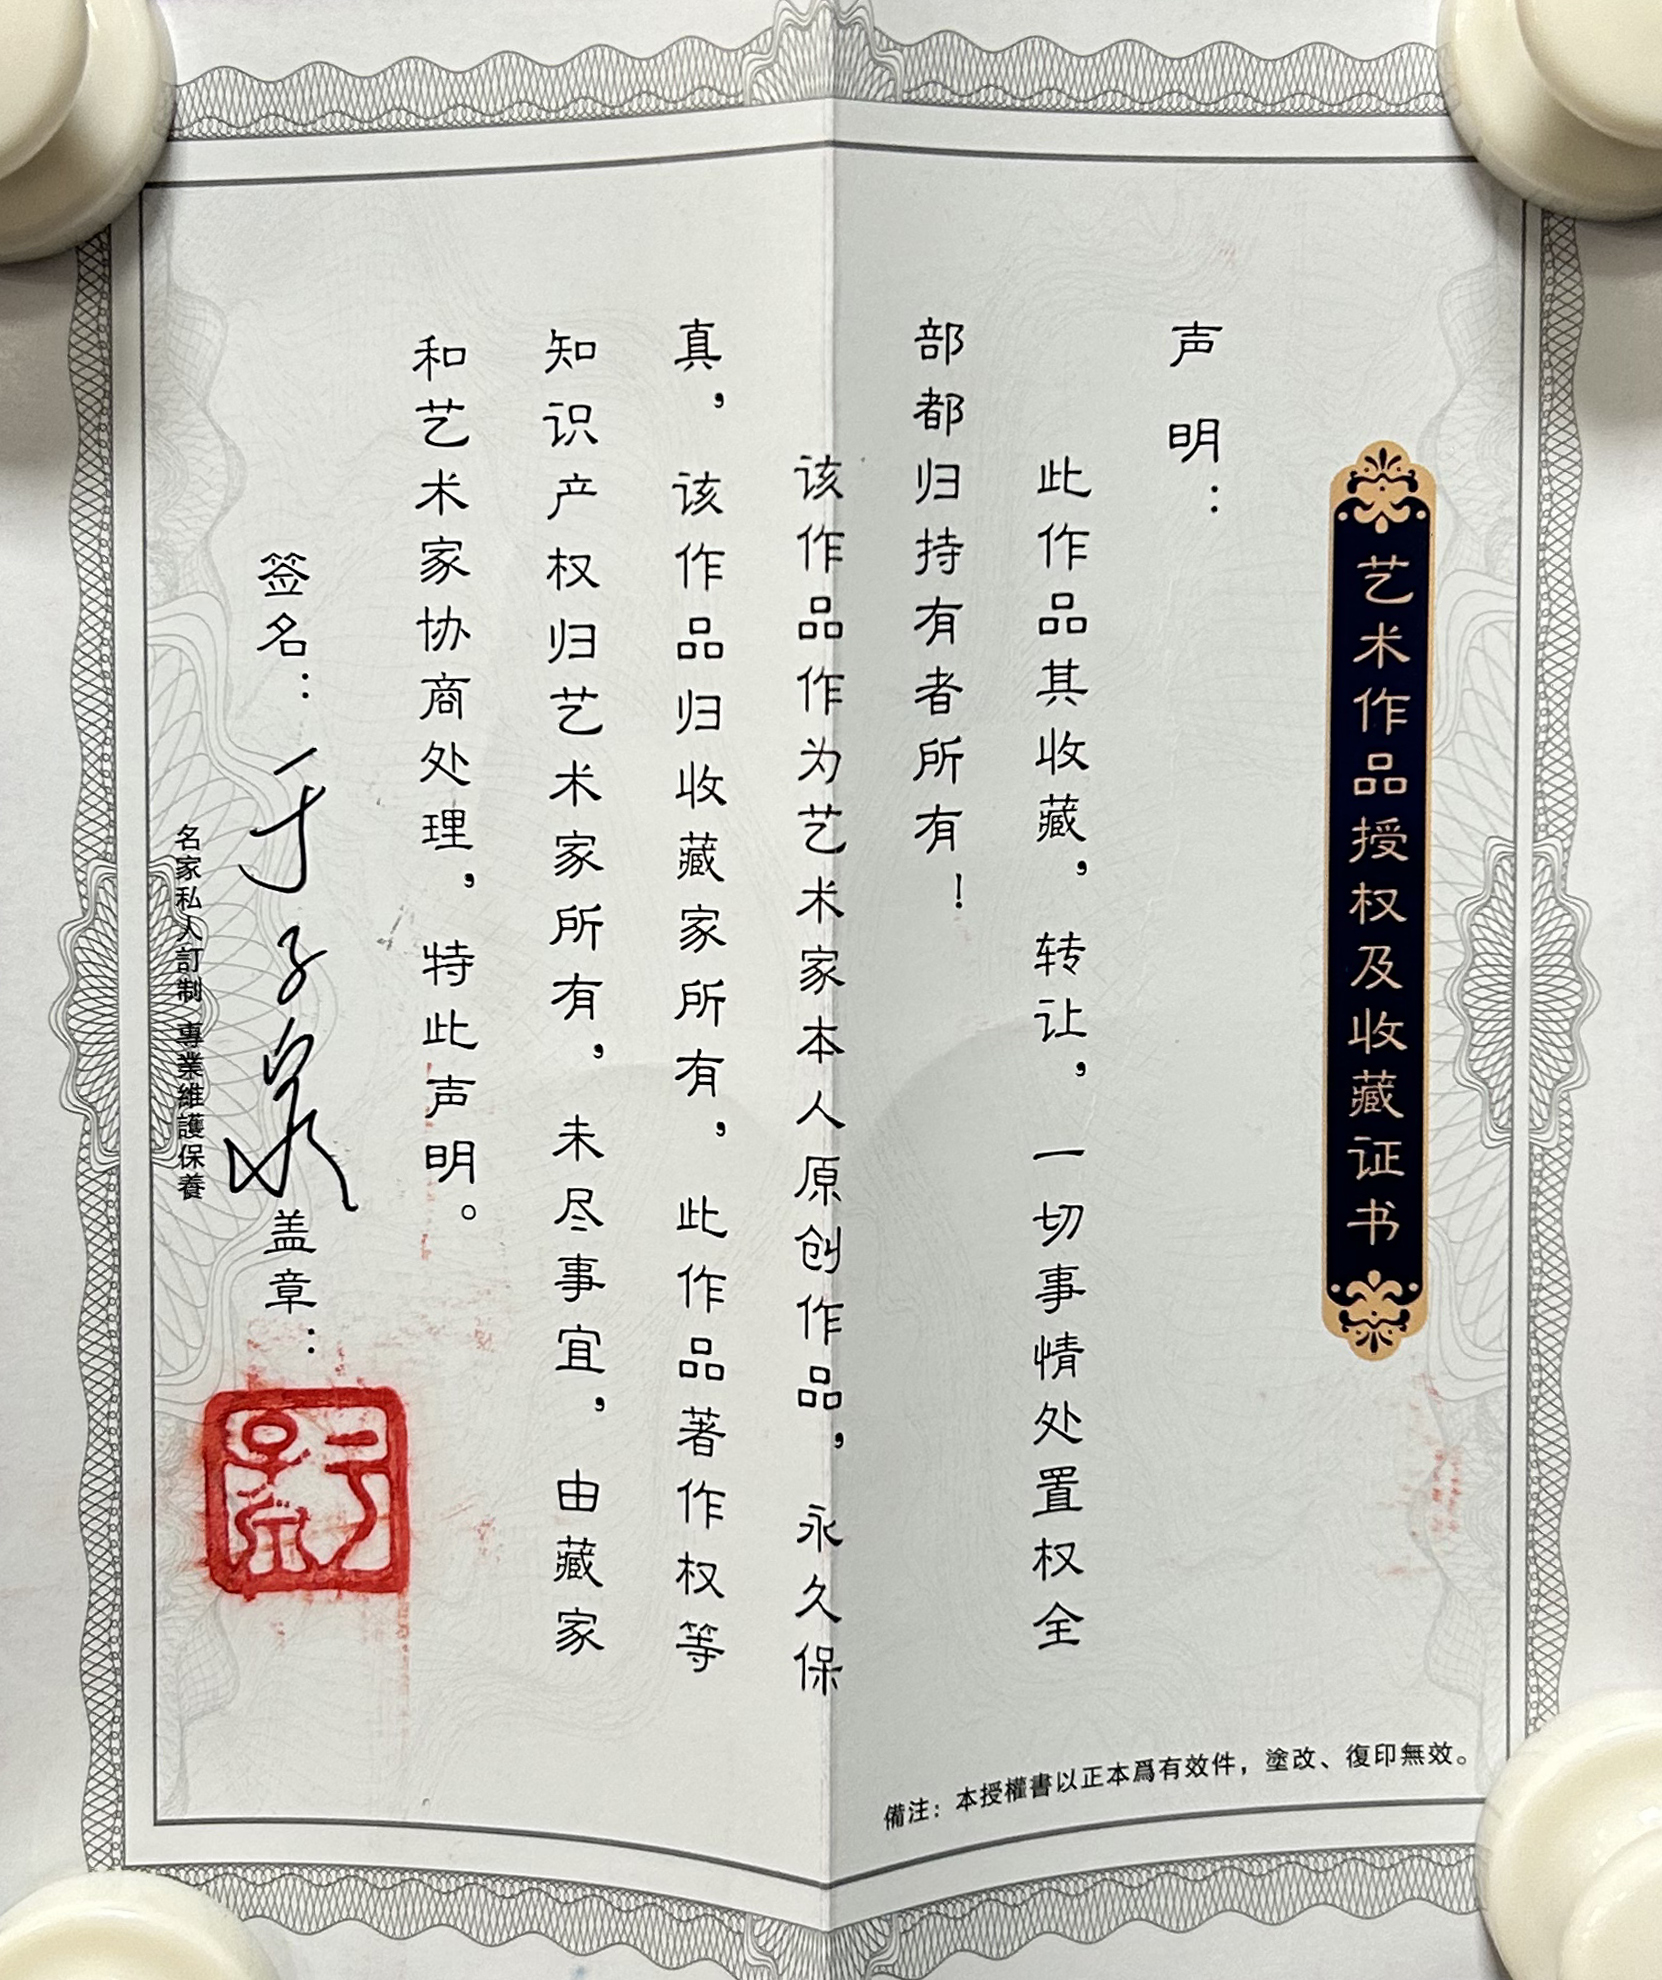 艺术作品授权及收藏证书
声明：
此作品其收藏，转让，一切事情处置权全
部都归持有者所有！
该作品作为艺术家本人原创作品，永久保
真，该作品归收藏家所有，此作品著作权等
知识产权归艺术家所有，未尽事宜，由藏家
和艺术家协商处理，特此声明。
签名：于子泉盖章：
名家私人訂制 專業維護保養
備注：本授權書以正本爲有效件，塗改、復印無效。